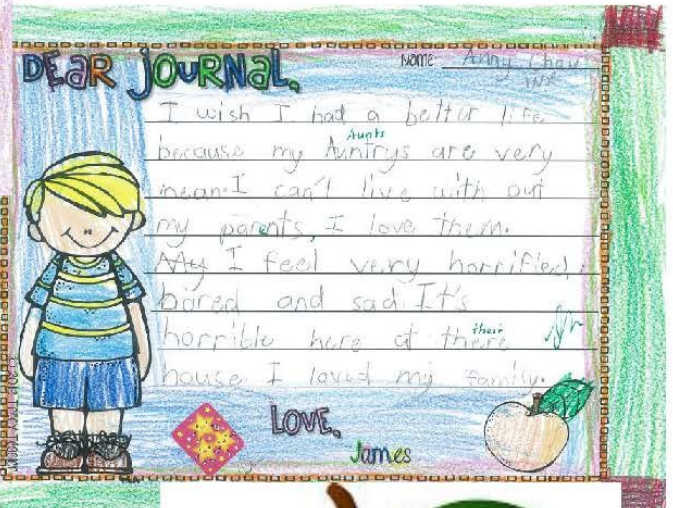 DEAR JOURNAL,
Name Anny Chau
I wish I had a better life
Aunts
because my Auntrys are very
mean I can't live with out
my parents, I love them.
My I feel very horrified,
bored and sad. It's
their
horrible here at there
house I loved my family.
LOVE,
James